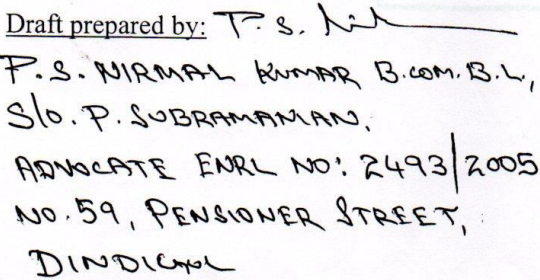 Draft prepared by: P. S.
P.S. NIRMAL KUMAR B.COM.B.L,
S/o. P. SUBRAMANIAN,
ADVOCATE ENRL NO: 2493/2005
NO.59, PENSIONER STREET,
DINDIGUL